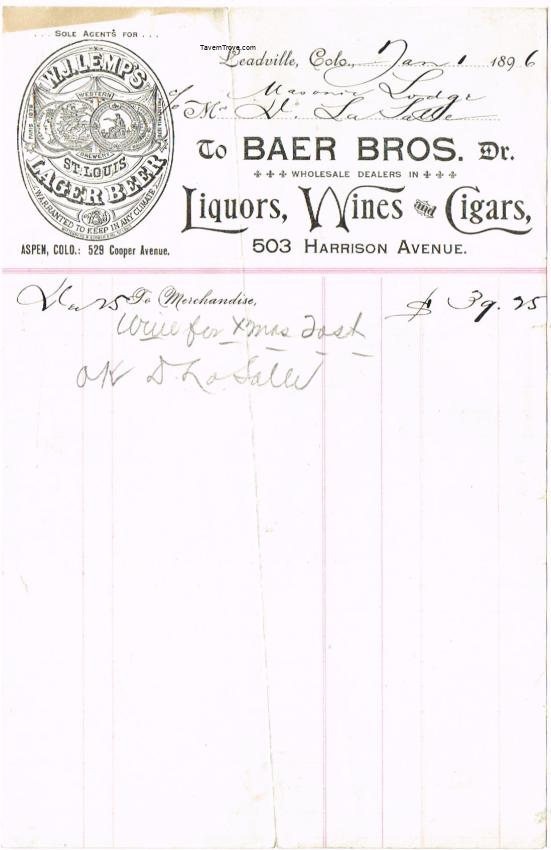 ... SOLE AGENTS FOR ...
W.J. LEMP'S
WESTERN
BREWERY
ST. LOUIS
LAGER BEER
WARRANTED TO KEEP IN ANY CLIMATE
ASPEN, COLO.: 529 Cooper Avenue.
TavernTrove.com
Leadville, Colo., Jan 1 1896
c/o Masonic Lodge
M D. La Salle
To BAER BROS. Dr.
WHOLESALE DEALERS IN
Liquors, Wines and Cigars,
503 HARRISON AVENUE.
Dec 25 To Merchandise, $ 39.25
Wine for Xmas Toast
OK D LaSalle